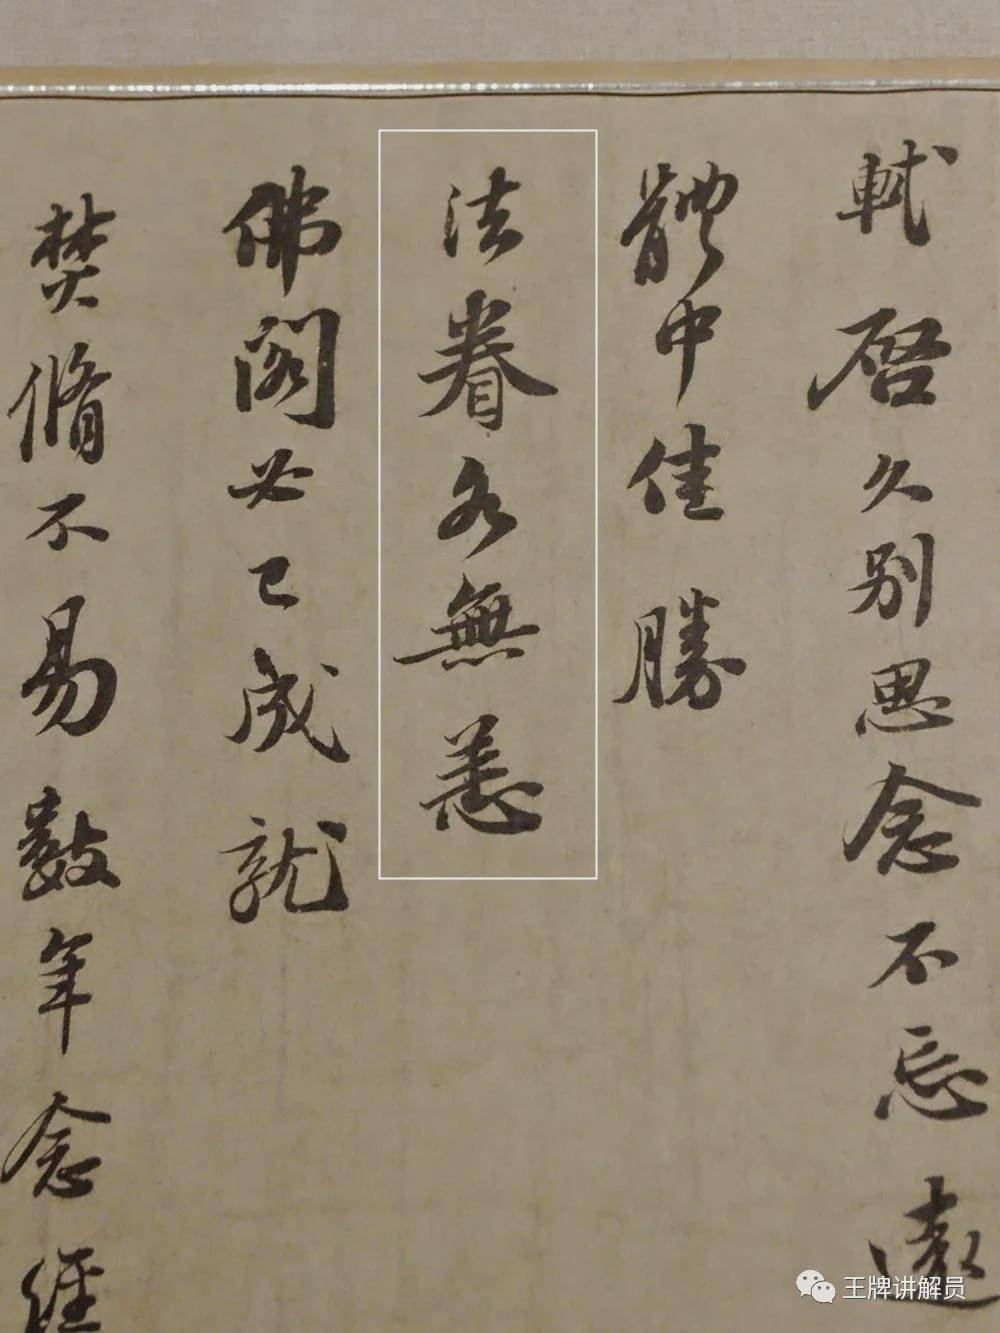 軾啓久别思念不忘遠
體中佳勝
法眷各無恙
佛閣必已成就
焚脩不易數年念經
王牌讲解员